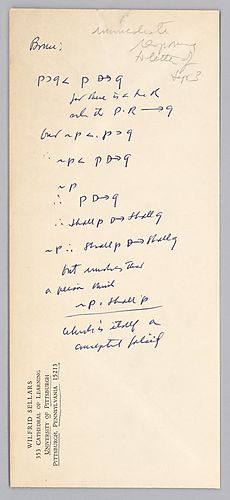 Bruce:
immediate
response
to letter of
Sept 3
p⊃q < p D→ q
for there is a true R
such that P·R ⟶ q
but ~p < . p ⊃ q
∴ ~p < p D→ q
~p
∴ p D→ q
∴ Shall p D→ Shall q
~p ∴ Shall p D→ Shall q
but involves that
a person think
~p · Shall p
which is itself a
conceptual
WILFRID SELLARS
353 CATHEDRAL OF LEARNING
UNIVERSITY OF PITTSBURGH
PITTSBURGH, PENNSYLVANIA 15213